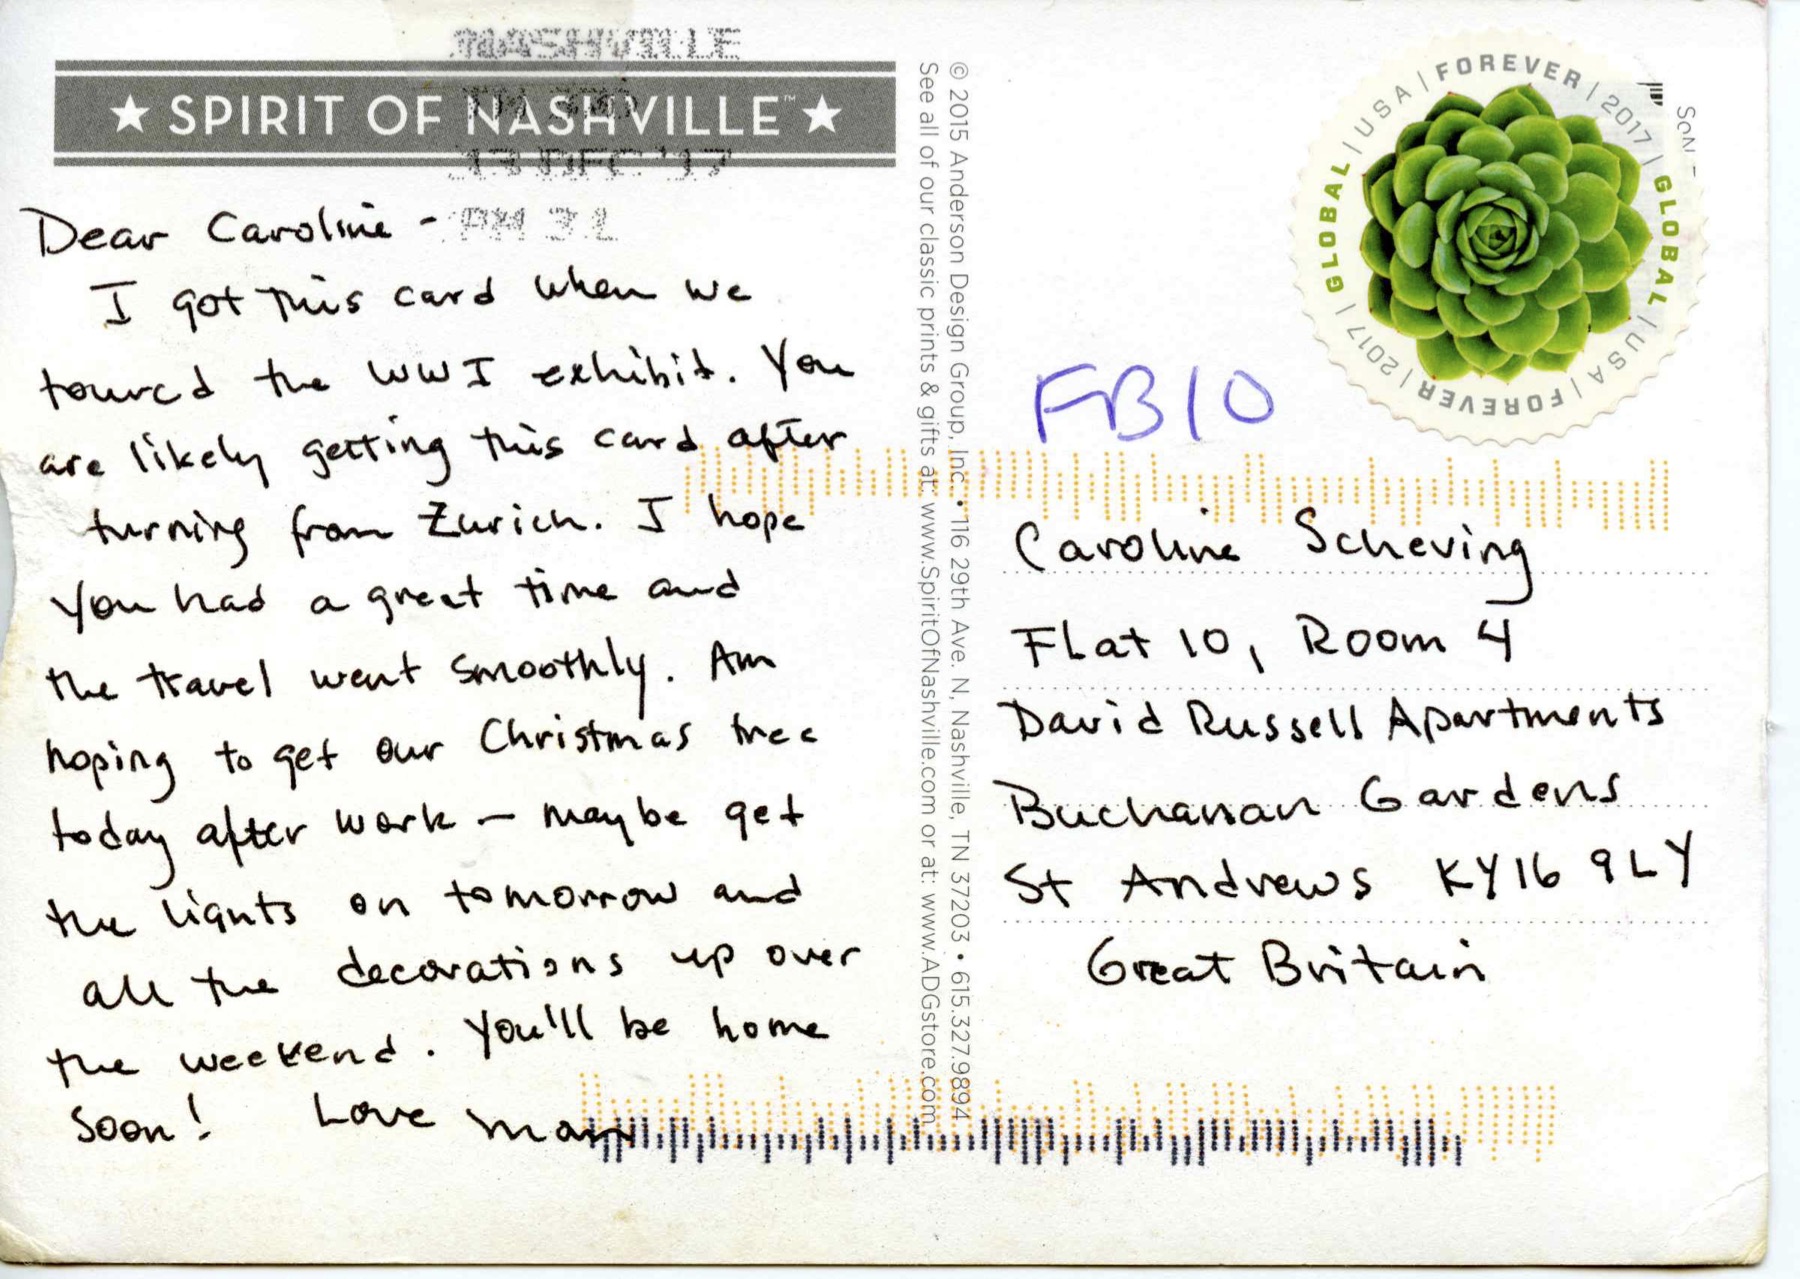 NASHVILLE
★ SPIRIT OF NASHVILLE™ ★
13 DEC '17
PM 3 L
Dear Caroline -
I got this card when we
toured the WWI exhibit. You
are likely getting this card after
turning from Zurich. I hope
you had a great time and
the travel went smoothly. Am
hoping to get our Christmas tree
today after work - maybe get
the lights on tomorrow and
all the decorations up over
the weekend. You'll be home
soon! Love Mom
© 2015 Anderson Design Group, Inc. • 116 29th Ave. N, Nashville, TN 37203 • 615.327.9894
See all of our classic prints & gifts at: www.SpiritOfNashville.com or at: www.ADGstore.com
GLOBAL | USA | FOREVER | 2017 | GLOBAL | USA | FOREVER | 2017 |
FB10
Caroline Scheving
Flat 10, Room 4
David Russell Apartments
Buchanan Gardens
St Andrews KY16 9LY
Great Britain